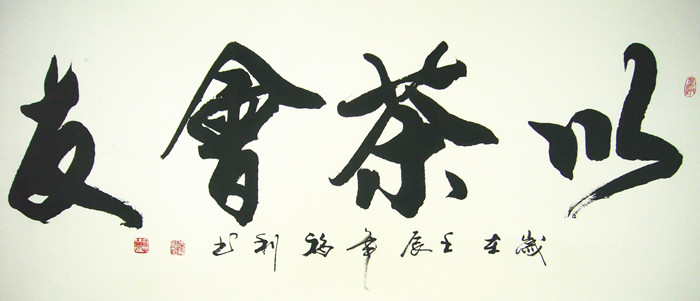 以茶會友
歲在壬辰年福利书